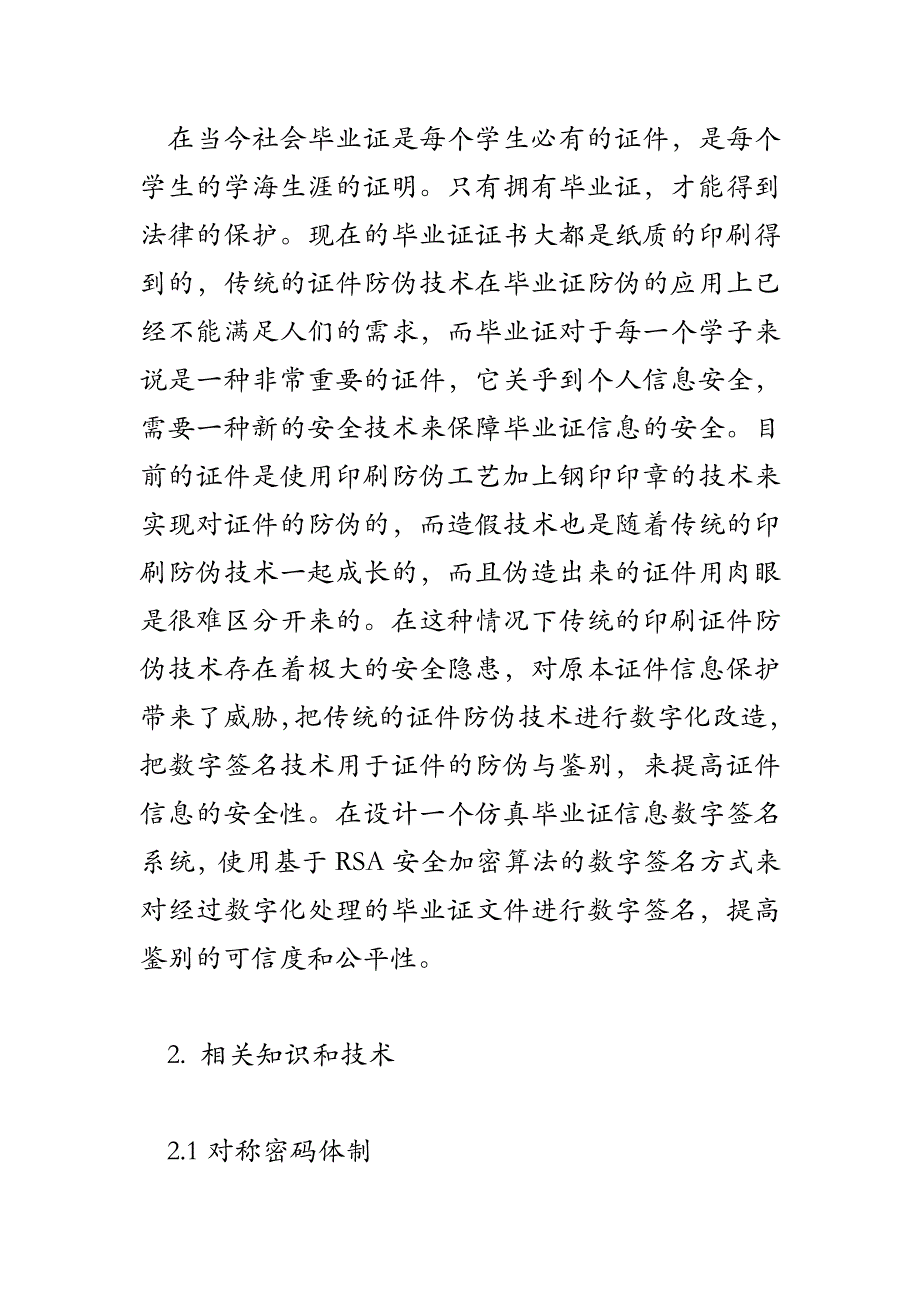 在当今社会毕业证是每个学生必有的证件，是每个
学生的学海生涯的证明。只有拥有毕业证，才能得到
法律的保护。现在的毕业证证书大都是纸质的印刷得
到的，传统的证件防伪技术在毕业证防伪的应用上已
经不能满足人们的需求，而毕业证对于每一个学子来
说是一种非常重要的证件，它关乎到个人信息安全，
需要一种新的安全技术来保障毕业证信息的安全。目
前的证件是使用印刷防伪工艺加上钢印印章的技术来
实现对证件的防伪的，而造假技术也是随着传统的印
刷防伪技术一起成长的，而且伪造出来的证件用肉眼
是很难区分开来的。在这种情况下传统的印刷证件防
伪技术存在着极大的安全隐患，对原本证件信息保护
带来了威胁，把传统的证件防伪技术进行数字化改造，
把数字签名技术用于证件的防伪与鉴别，来提高证件
信息的安全性。在设计一个仿真毕业证信息数字签名
系统，使用基于 RSA 安全加密算法的数字签名方式来
对经过数字化处理的毕业证文件进行数字签名，提高
鉴别的可信度和公平性。
2. 相关知识和技术
2.1 对称密码体制